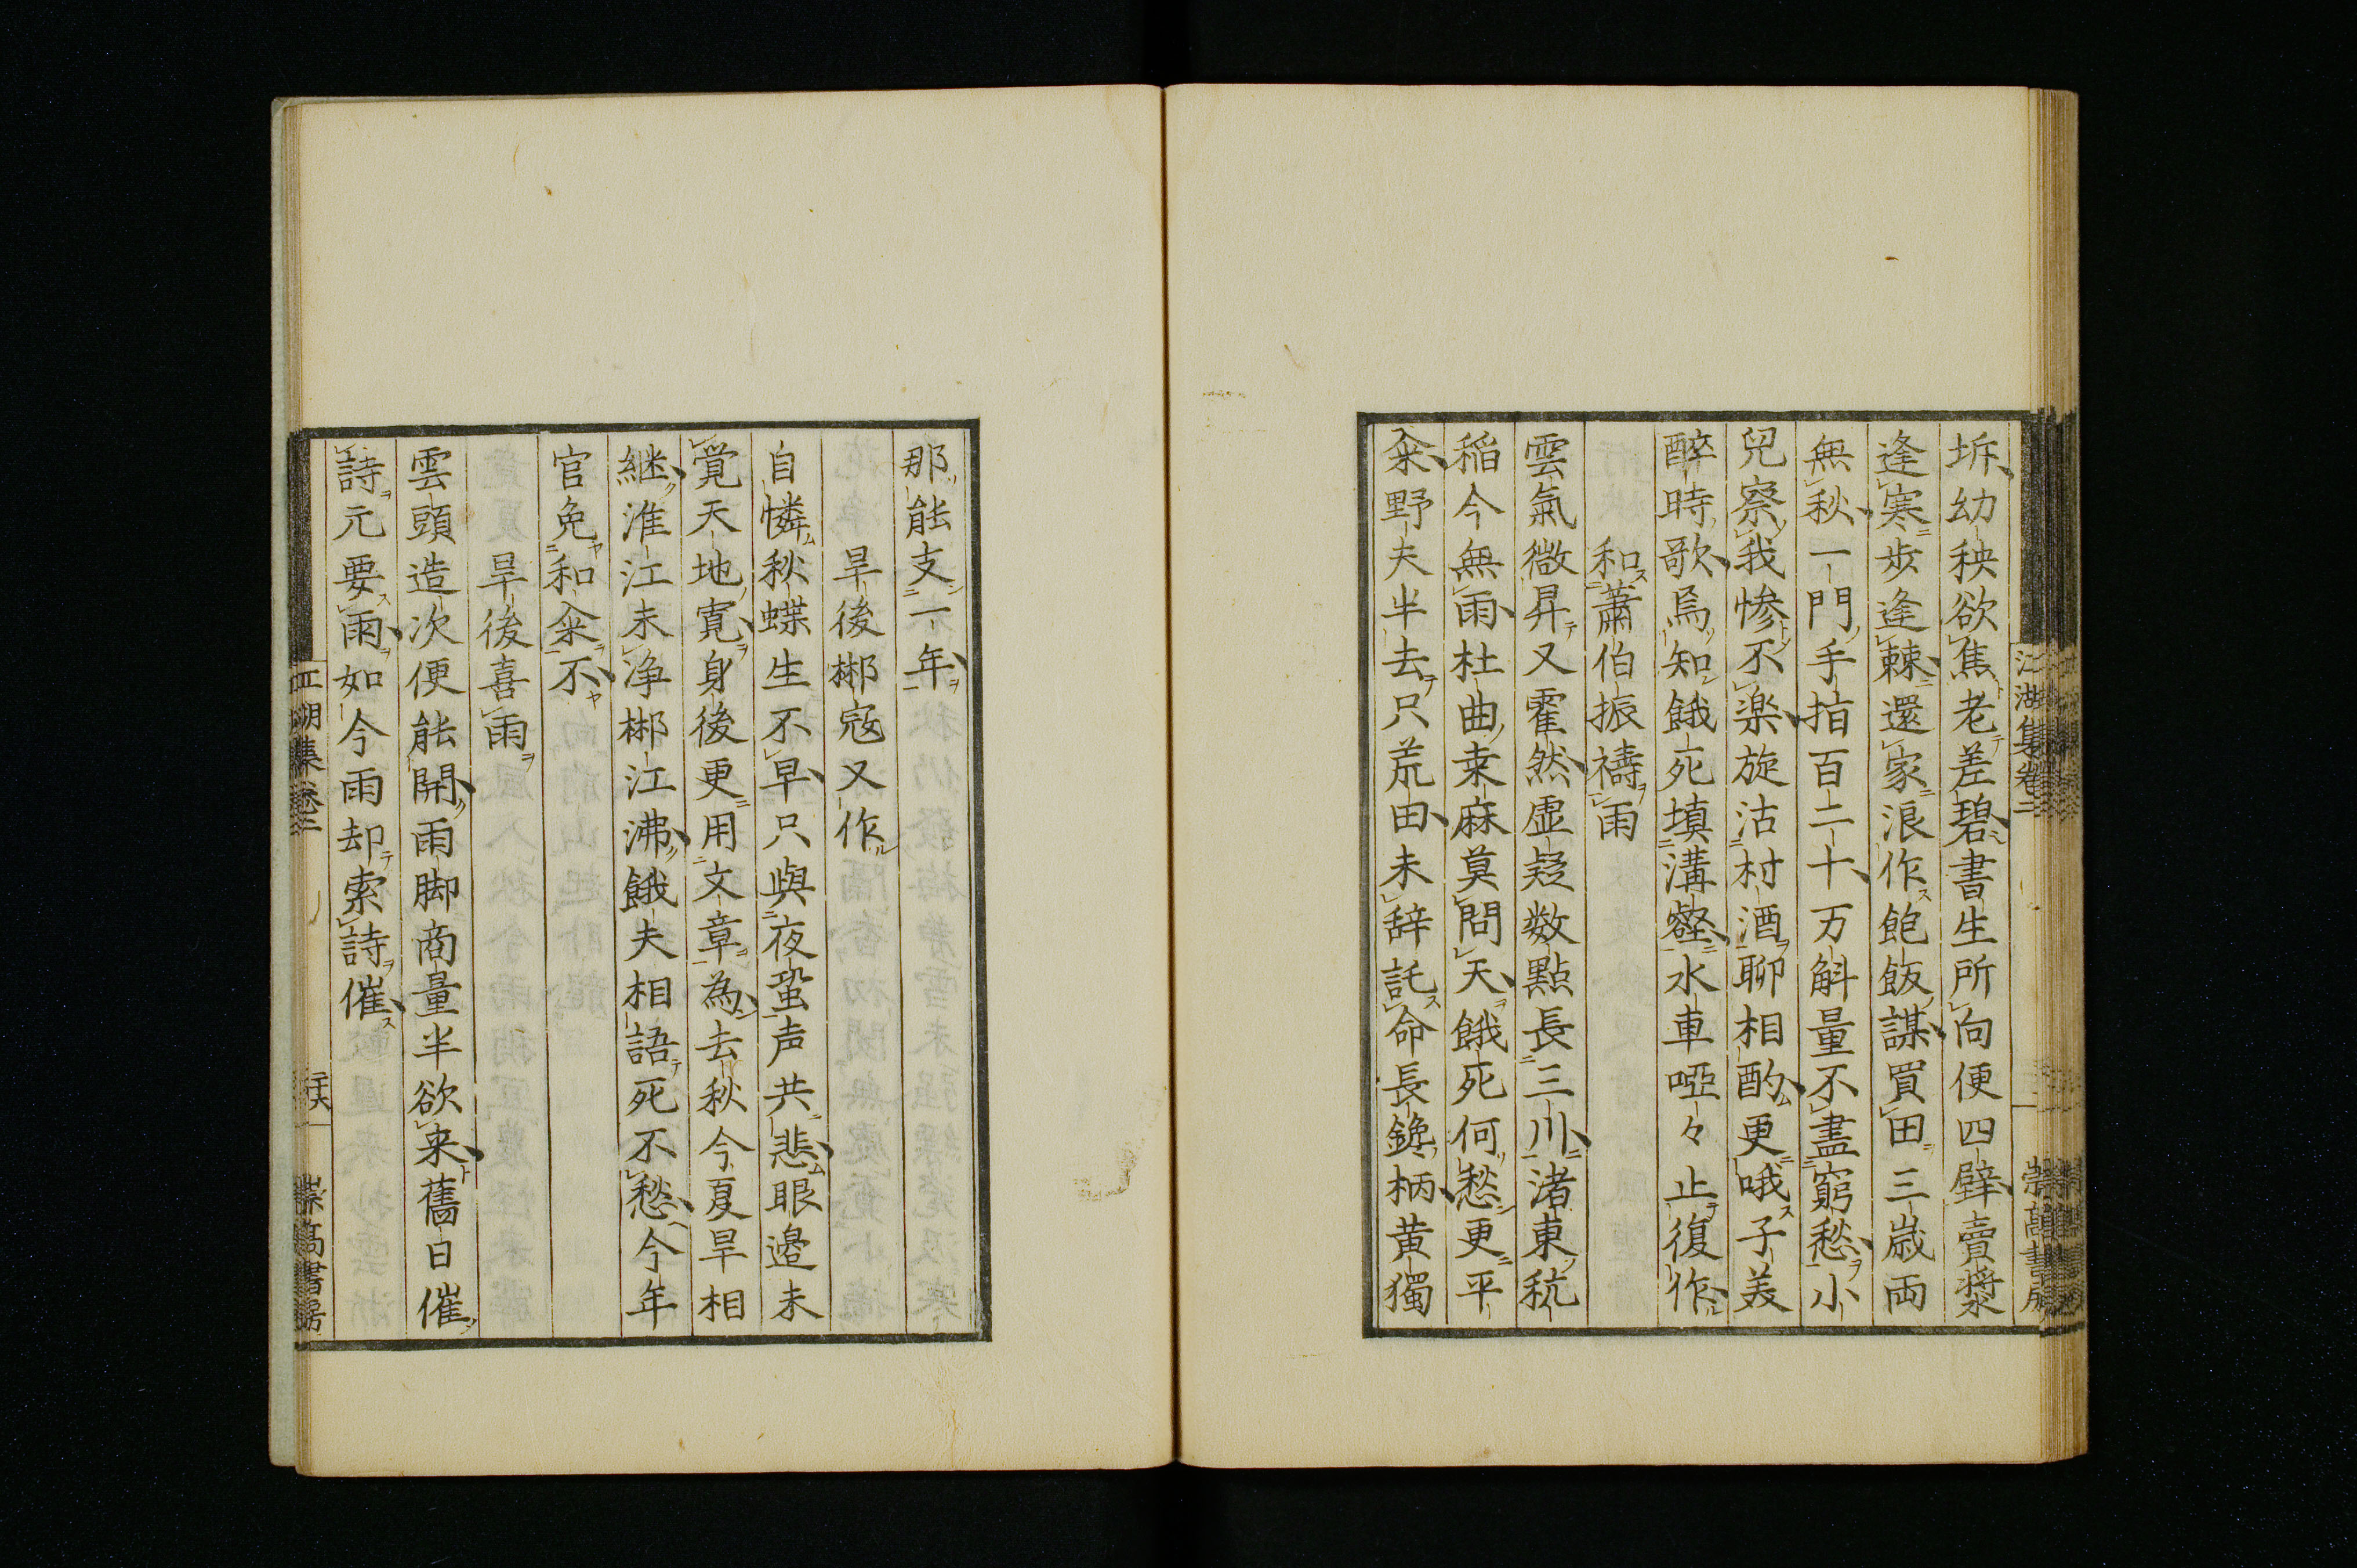 江湖集卷二
崇高書房
坼幼秧欲焦老差碧書生所向便四壁賣漿
逢寒歩逢棘還家浪作飽飯謀買田三歳両
無秋一門手指百二十万斛量不盡窮愁小
児察我惨不楽旋沽村酒聊相酌更哦子美
醉時歌焉知餓死填溝壑水車啞々止復作
和蕭伯振禱雨
雲氣微昇又霍然虚疑数點長三川渚東秔
稲今無雨杜曲桒麻莫問天餓死何愁更平
籴野夫半去只荒田未辞託命長鑱柄黄獨
那能支一年
旱後郴寇又作
自憐秋蝶生不早只與夜蛩声共悲眼邉未
覚天地寛身後更用文章為去秋今夏旱相
継淮江未浄郴江沸餓夫相語死不愁今年
官免和籴不
旱後喜雨
雲頭造次便能開雨脚商量半欲来舊日催
詩元要雨如今雨却索詩催
江湖集卷二
崇高書房